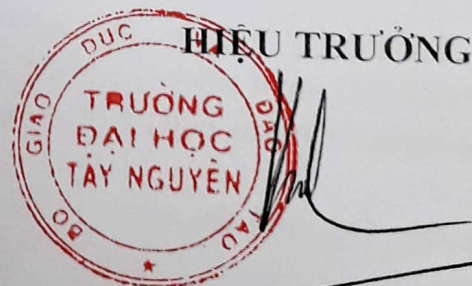 HIỆU TRƯỞNG
BỘ GIÁO DỤC ĐÀO TẠO
TRƯỜNG
ĐẠI HỌC
TÂY NGUYÊN